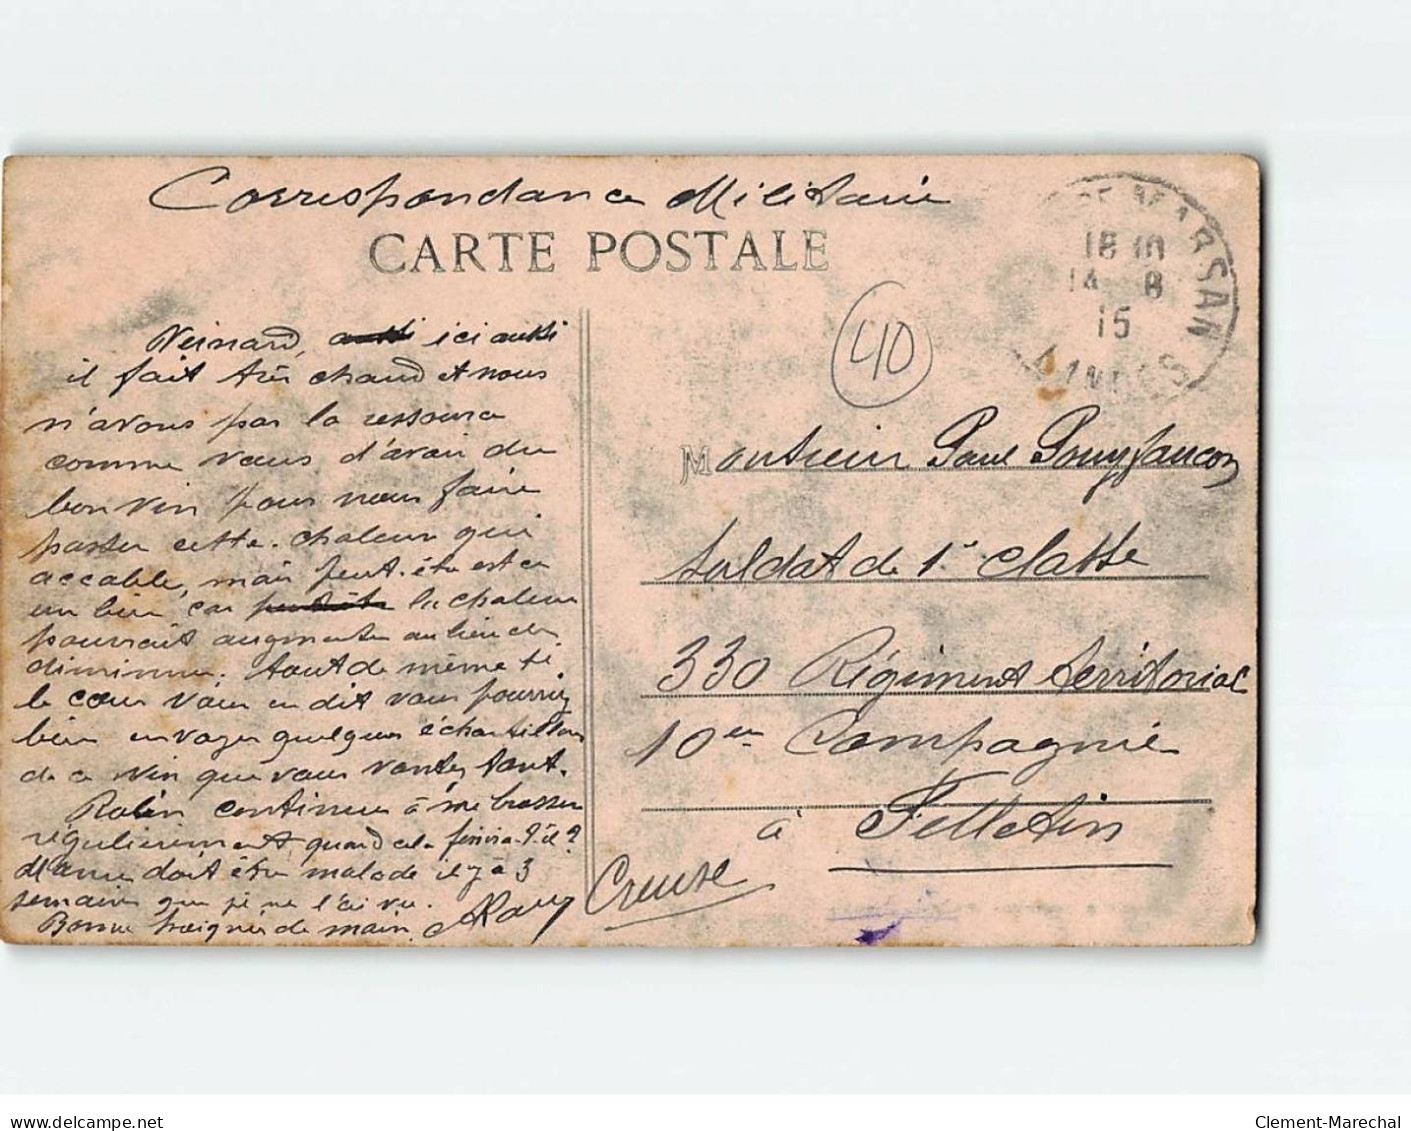 Correspondance Militaire
CARTE POSTALE
DE MARSAN
18
14 8
15
LANDES
40
ici aussi
il fait très chaud et nous
n'avons pas la ressource
comme vous d'avoir du
bon vin pour nous faire
passer cette chaleur qui
accable, mais peut-être est ce
un bien car la chaleur
pourrait augmenter au lieu de
diminuer. tout de même si
le cœur vous en dit vous pourriez
bien envoyer quelques échantillons
de ce vin que vous vantez tant.
continue à me brosser
régulièrement, quand cela finira-t-il ?
doit être malade il y a 3
semaines que je ne l'ai vu.
Bonne poignée de main
Monsieur Paul Pouyfaucon
Soldat de 1e classe
330 Régiment territorial
10em Compagnie
à Felletin
Creuse
delcampe.net
Clement-Marechal